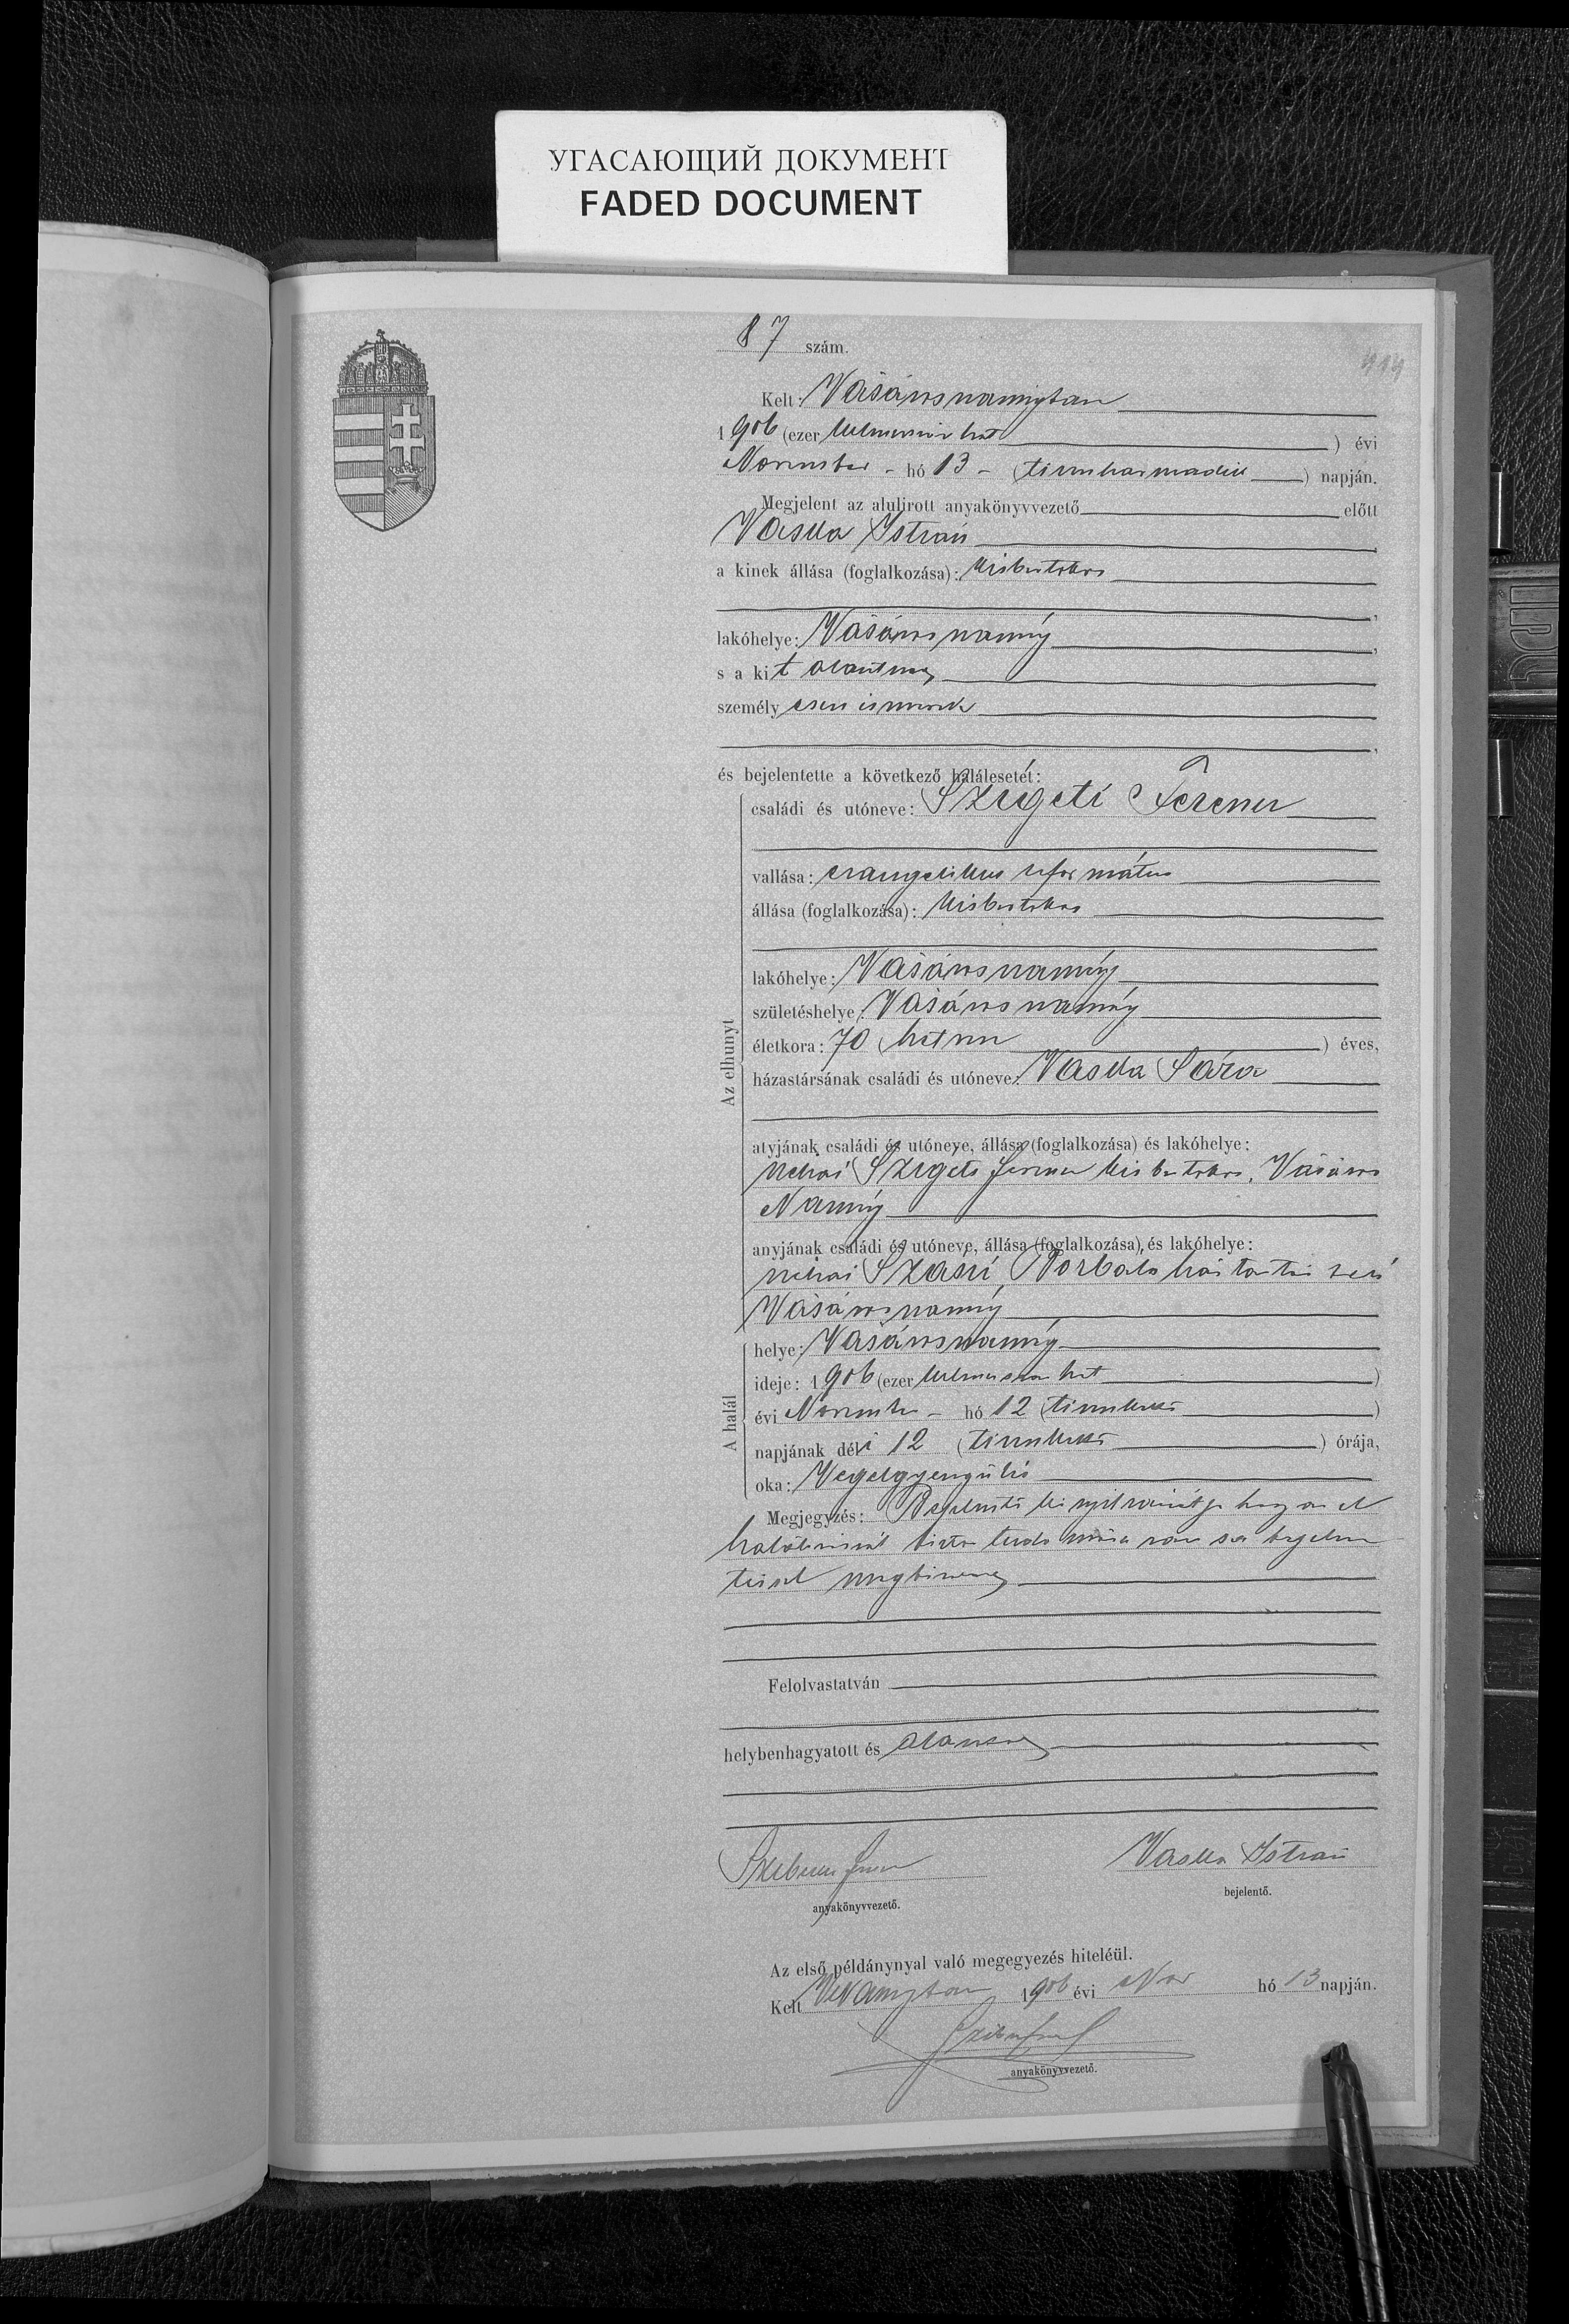 УГАСАЮЩИЙ ДОКУМЕНТ
FADED DOCUMENT
87 szám.
Kelt: Vásárosnaményban
1906 (ezer kilencszáz hat) évi
November - hó 13 - (tizenharmadik) napján.
Megjelent az alulirott anyakönyvvezető előtt
Vaska István
a kinek állása (foglalkozása): kisbirtokos
lakóhelye: Vásárosnamény,
s a kit
személy esen ismerek
és bejelentette a következő halálesetét:
családi és utóneve: Szigeti Ferencz
vallása: evangelikus református
állása (foglalkozása): kisbirtokos
lakóhelye: Vásárosnamény
születéshelye: Vásárosnamény
életkora: 70 (hetven) éves,
házastársának családi és utóneve: Vaska Sára
Az elhunyt
atyjának családi és utóneve, állása (foglalkozása) és lakóhelye:
néhai Szigeti Ferencz kisbirtokos, Vásáros
Namény
anyjának családi és utóneve, állása (foglalkozása), és lakóhelye:
néhai Borbála háztartás
Vásárosnamény
A halál
helye: Vásárosnamény
ideje: 1906 (ezer kilenczszáz hat)
évi November - hó 12 (tizenkettő)
napjának déli 12 (tizenkettő) órája,
oka: Végelgyengülés
Megjegyzés: Bejelentő kinyilvánítja hogy az el
halálozásról biztos tudomása van s a bejelen
téssel megbízva
Felolvastatván
helybenhagyatott és aláíratott
anyakönyvvezető.
Vaska István
bejelentő.
Az első példánynyal való megegyezés hiteléül.
Kelt VNaményban 1906 évi Nov hó 13 napján.
anyakönyvvezető.